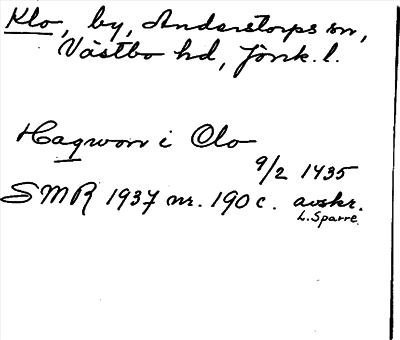 Klo, by, Anderstorps sn,
Västbo hd, Jönk. l.
Haqwon i Clo
9/2 1435
SMR 1937 nr. 190 c. avskr.
L. Sparre.